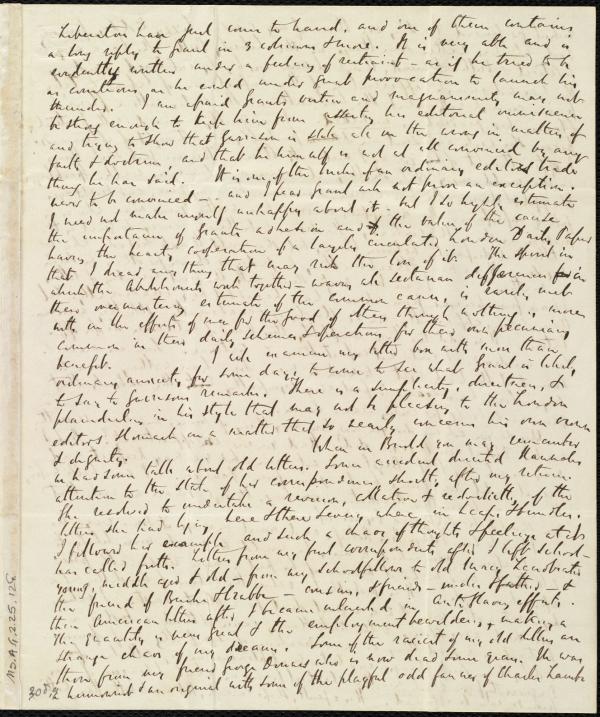 Liberators have just come to hand, and one of them contains
a long reply to Grant in 3 columns & more. It is very able and is
evidently written under a feeling of restraint - as if he tried to be
as conciliatory as he could under great provocation to launch his
thunder. I am afraid Grant's virtue and magnanimity may not
be strong enough to keep him from asserting his editorial omniscience
and trying to show that Garrison is all in the wrong in matters of
faith & doctrine, and that he himself is not at all convinced by any
thing he has said. It is one of the tricks of an ordinary editor's trade
never to be convinced - and I fear Grant will not prove an exception.
I need not make myself unhappy about it - but I so highly estimate
the importance of Grant's adhesion and of the value of the cause
having the hearty cooperation of a largely circulated London Daily Paper
that I dread any thing that may risk the loss of it. The spirit in
which the Abolitionists work together - waving all sectarian differences in
their overmastering estimate of the common cause, is rarely met
with in the efforts of men for the good of others though nothing is more
common in their daily schemes & operations for their own pecuniary
benefit. I will examine my letter box with more than
ordinary anxiety for some days to come to see what Grant is likely
to say to Garrison's remarks. There is a simplicity, directness, &
plaindealing in his style that may not be pleasing to the London
editor's stomach in a matter that so nearly concerns his own
& dignity. When in Bristol you may remember
we had some talk about old letters. Some accident directed Hannah's
attention to the state of her correspondence shortly after my return.
She resolved to undertake a revision, collation & of the
letters she had lying here & there & every where in heaps & bundles.
I followed her example and such a chaos of thoughts & feelings at
was called forth. Letters from my first correspondents after I left school -
from my schoolfellows to old
young, middle aged & old - cousins, & friends - &
the friend of Burke & Crabbe -
then American letters after I became interested in Anti Slavery efforts.
The quantity is very great & the employment bewilders, & making a
strange chaos of my dreams. Some of the raciest of my old letters are
those from my friend George Downes who is now dead some years. He was
a humourist & an original with some of the playful odd fancies of Charles Lamb
MS.A.1.2.25.128